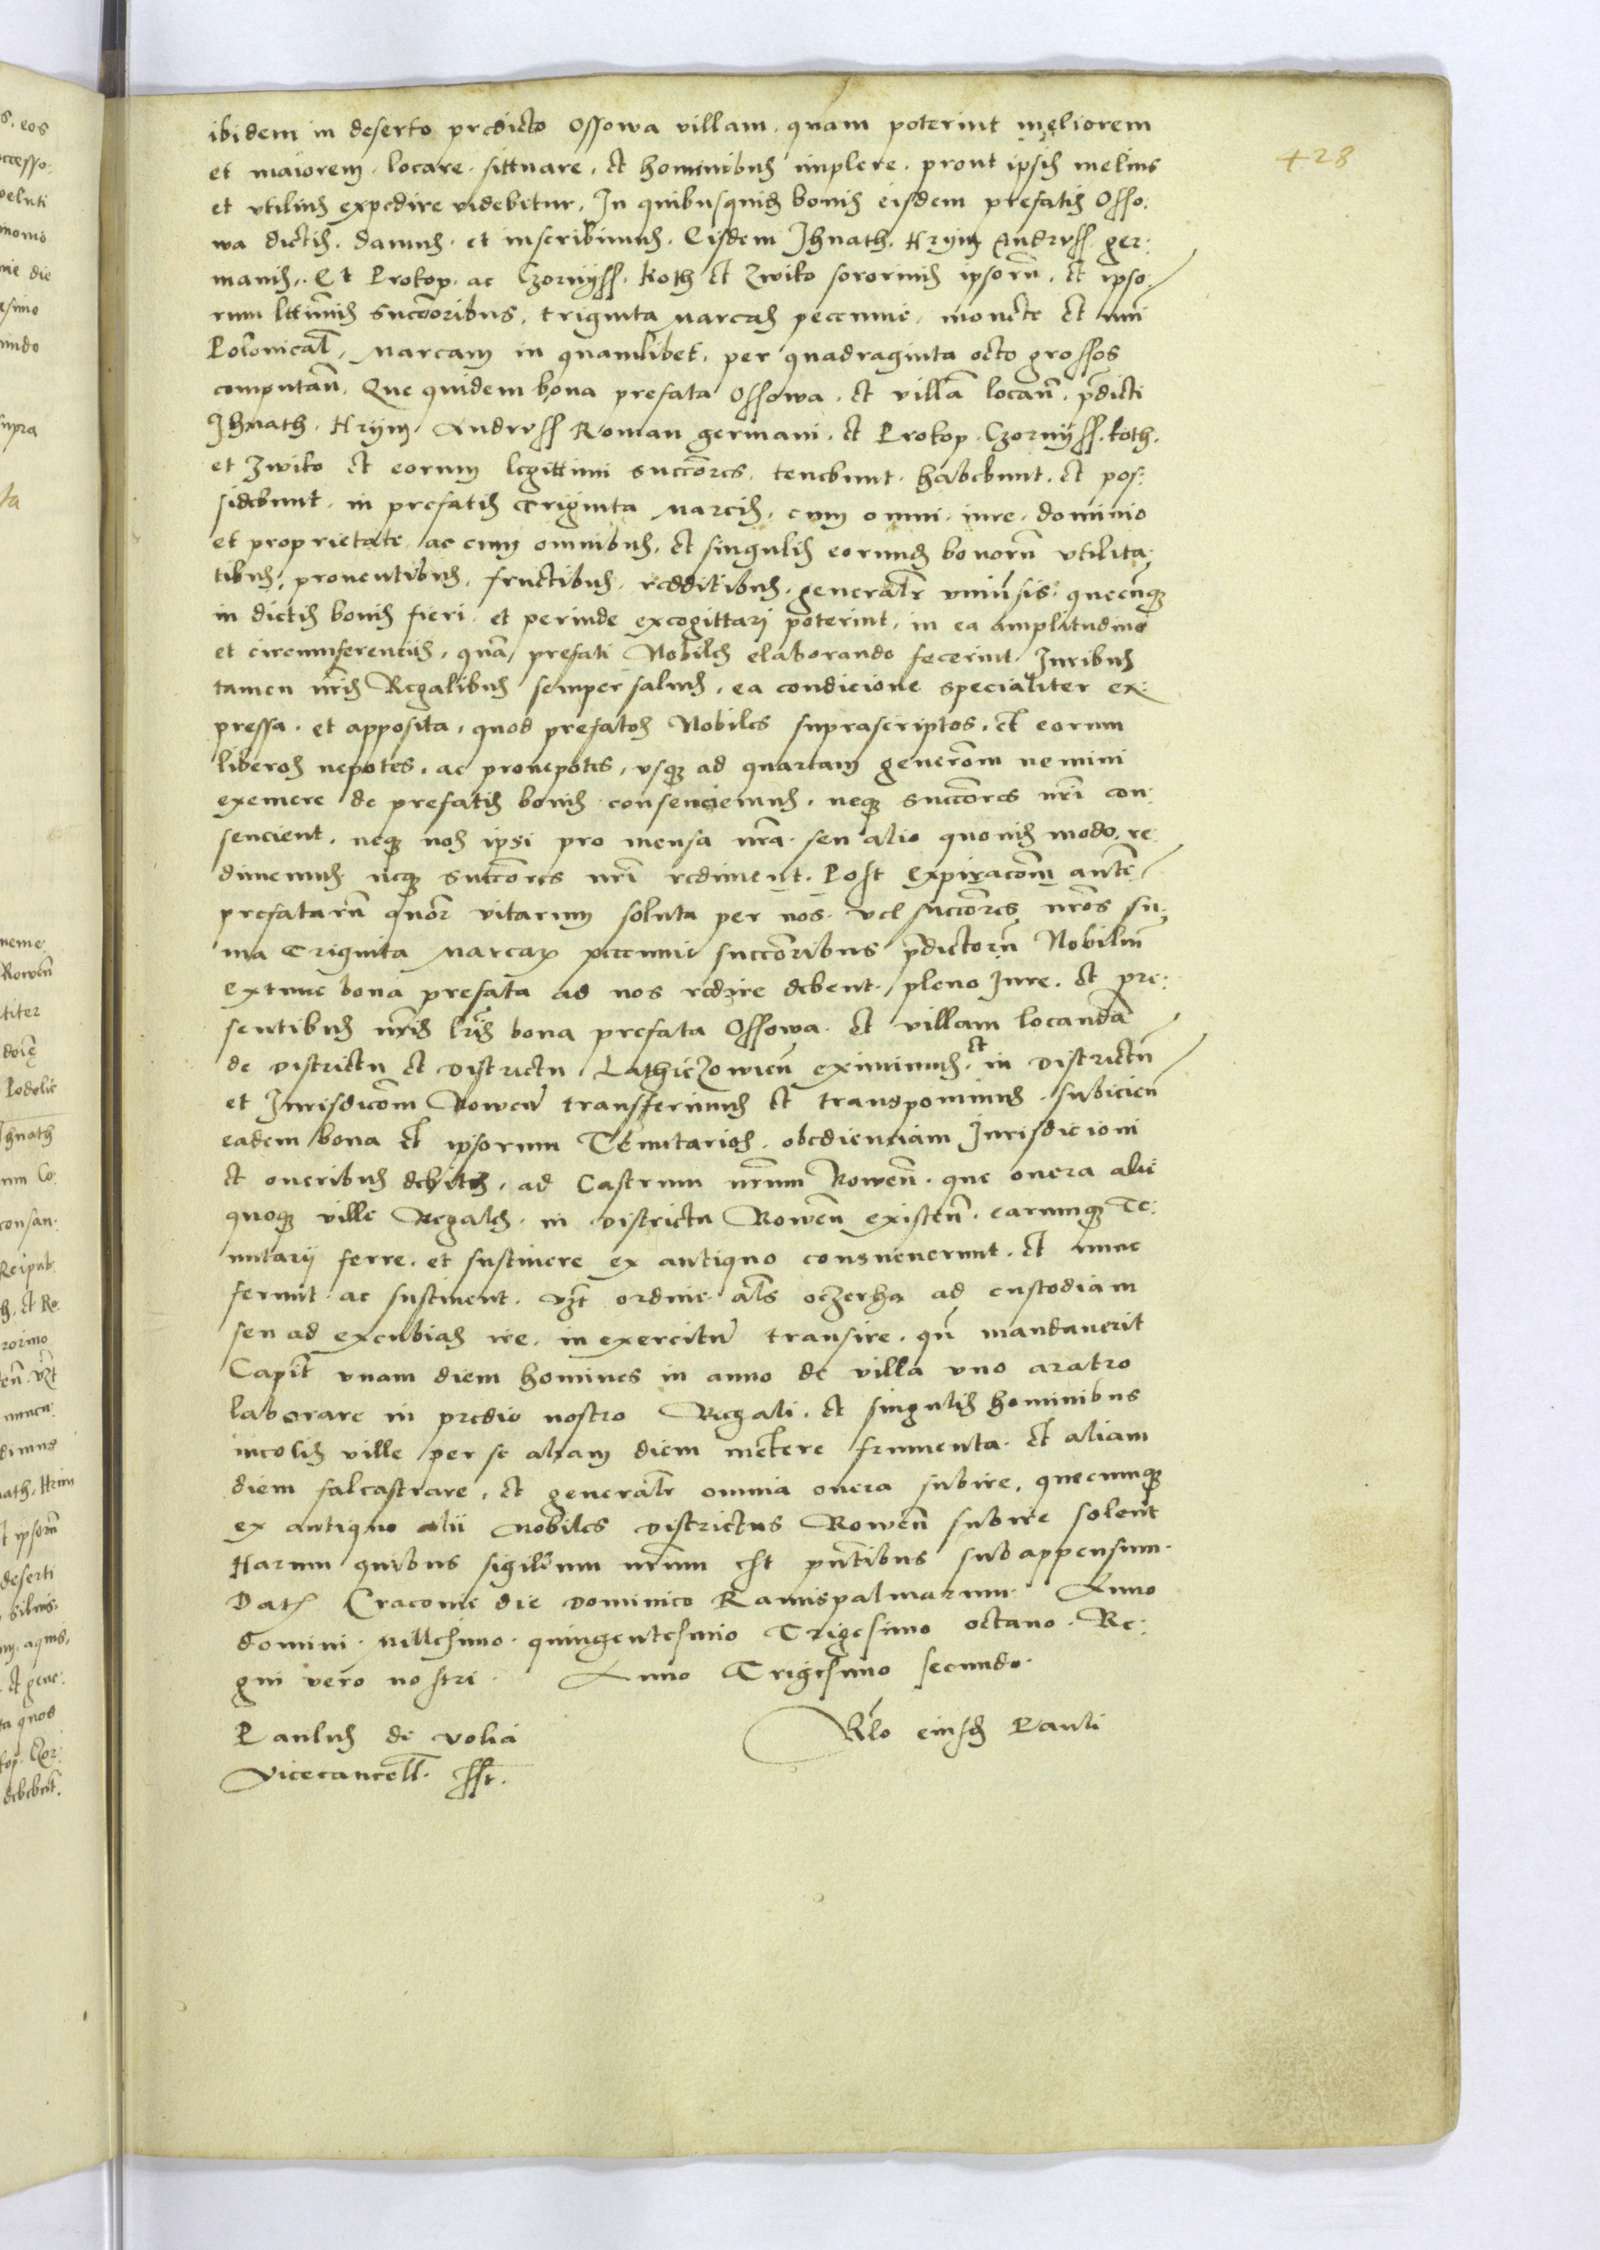 428
ibidem in deserto predicto Ossowa villam, quam poterint meliorem
et maiorem, locare, sittuare, et hominibus implere, prout ipsis melius
et utilius expedire videbitur. In quibusquid bonis eisdem prefatis Osso:
wa dictis, damus et inscribimus, Eisdem Ihnath, Hrym Andruss ger:
manis, Et Prokop ac Czornyss, Koth et Zwiko sororinis ipsoru, et ipso:
rum lttimis succoribus, triginta marcas peccunie, monete et nui
Polonicat, Marcam in quamlibet, per quadraginta octo grossos
computan, Que quidem bona prefata Ossowa, et villa locan, pdicti
Ihnath, Hrym, Andruss Roman germani, et Prokop, Czornyss, Koth,
et Zwiko et eorum legittimi succores, tenebunt, habebunt, et pos:
sidebunt, in prefatis triginta Marcis, cum omni iure, dominio
et proprietate ac cum omnibus, et singulis eorund bonoru utilita:
tibus, proventibus, fructibus, redditibus, generalr uniusis, quecunq
in dictis bonis fieri, et perinde excogittari poterint, in ea amplitudine
et circumferenciis, qua prefati Nobiles elaborando fecerint, Iuribus
tamen nris Regalibus semper salvis, ea condicione specialiter ex:
pressa, et apposita, quod prefatos Nobiles suprascriptos, et eorum
liberos nepotes, ac pronepotes, usq ad quartam generom nemini
exemere de prefatis bonis consenciemus, neq succores nri con:
sencient, neq nos ipsi pro mensa nra seu alio quovis modo, re:
dimemus neq succores nri rediment. Post expiracom aute
prefataru quor vitarum soluta per nos vel succores nros su:
ma Triginta Marcar peccunie succoribus pdictoru Nobiliu
extunc bona prefata ad nos redire debent, pleno Iure, et pre:
sentibus nris lris bona prefata Ossowa et villam locanda
de districtu et districtu Lathiczowien eximimus, et in districtu
et Iurisdicom Rowen transferimus et transponimus, subicien
eadem bona et ipsorum Tenutarios, obedienciam Iurisdicioni
et oneribus debitis, ad Castrum nrum Rowen, que onera alie
quoq ville Regales, in districtu Rowen existen, earumq Te:
nutarii ferre, et sustinere ex antiquo consueverunt, et nunc
ferunt ac sustinent, vzt ordine als oczerha ad custodiam
seu ad excubias ire, in exercitu transire, qn mandaverit
Capit unam diem homines in anno de villa uno aratro
laborare in predio nostro Regali, et singulis hominibus
incolis ville per se aliam diem metere frumenta, et aliam
diem falcastrare, et generalr omnia onera subire, quecumq
ex antiquo alii Nobiles districtus Rowen subire solent
Harum quibus sigillum nrum est pntibus subappensum.
Dat Cracovie die dominico Ramispalmarum Anno
domini Millesimo quingentesimo Trigesimo octavo. Re:
gni vero nostri Anno Trigesimo secundo.
Paulus de Volia
Vicecancell. sst.
Rlo eiusd Pauli